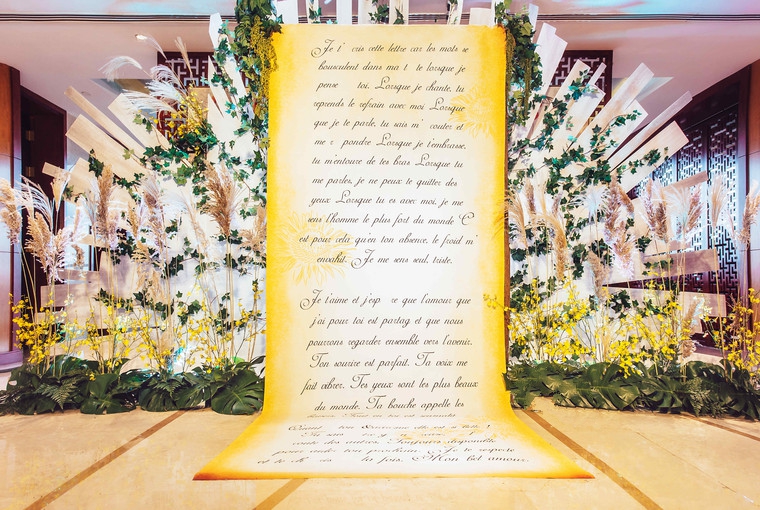 Je t' cris cette lettre car les mots se
bousculent dans ma t te lorsque je
pense toi. Lorsque je chante, tu
reprends le refrain avec moi. Lorsque
que je te parle, tu sais m' couter et
me r pondre. Lorsque je t'embrasse,
tu m'entoure de tes bras. Lorsque tu
me parles, je ne peux te quitter des
yeux. Lorsque tu es avec moi, je me
sens l'homme le plus fort du monde. C'
est pour cela qu'en ton absence, le froid m'
envahit. Je me sens seul, triste.
Je t'aime et j'esp re que l'amour que
j'ai pour toi est partag et que nous
pourrons regarder ensemble vers l'avenir.
Ton sourire est parfait. Ta voix me
fait vibrer. Tes yeux sont les plus beaux
du monde. Ta bouche appelle les
des autres. Toujours disponible
pour aider ton prochain. Je te respecte
et te la fois. Mon bel amour.